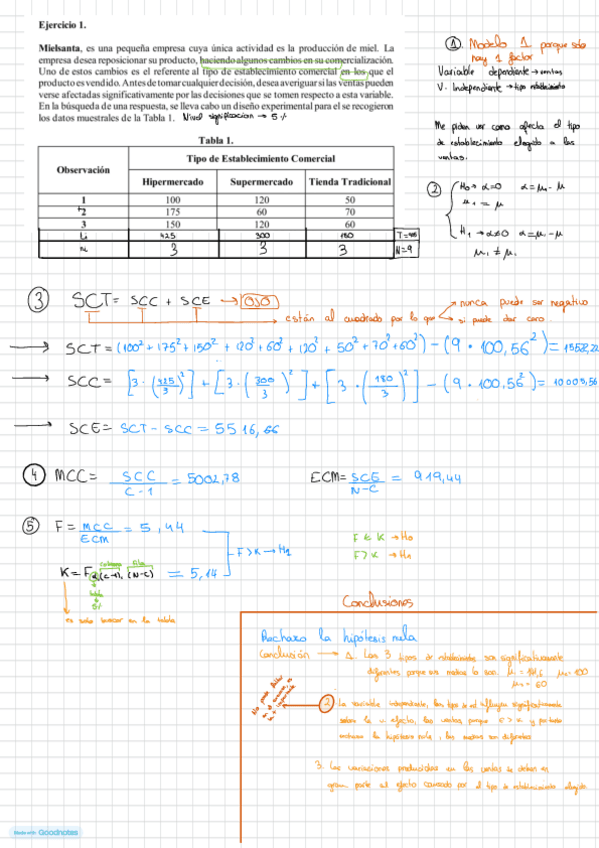 Ejercicio 1.
Mielsanta, es una pequeña empresa cuya única actividad es la producción de miel. La
empresa desea reposicionar su producto, haciendo algunos cambios en su comercialización.
Uno de estos cambios es el referente al tipo de establecimiento comercial en los que el
producto es vendido. Antes de tomar cualquier decisión, desea averiguar si las ventas pueden
verse afectadas significativamente por las decisiones que se tomen respecto a esta variable.
En la búsqueda de una respuesta, se lleva cabo un diseño experimental para el se recogieron
los datos muestrales de la Tabla 1. Nivel significacion → 5 %
Tabla 1.
Observación Tipo de Establecimiento Comercial
Hipermercado Supermercado Tienda Tradicional
1 100 120 50
2 175 60 70
3 150 120 60
Li 425 300 180 T=905
Ni 3 3 3 N=9
① Modelo 1 porque solo
hay 1 factor
Variable dependiente → ventas
V. Independiente → tipo establecimiento
Me piden ver como afecta el tipo
de establecimiento elegido a las
ventas.
② H0 → α=0 α=μ1 - μ
μ1 = μ
H1 → α≠0 α=μ1 - μ
μ1 ≠ μ
③ SCT = SCC + SCE → OJO
están al cuadrado por lo que
nunca puede ser negativo
si puede dar cero
→ SCT = (100² + 175² + 150² + 120² + 60² + 120² + 50² + 70² + 60²) - (9 · 100,56²) = 15522,22
→ SCC = [3 · (425/3)²] + [3 · (300/3)²] + [3 · (180/3)²] - (9 · 100,56²) = 10005,56
→ SCE = SCT - SCC = 5516,66
④ MCC = SCC / C-1 = 5002,78 ECM = SCE / N-C = 919,44
⑤ F = MCC / ECM = 5,44
F > K → H1
K = Fα, (C-1), (N-C) = 5,14
columna fila
5%
es solo buscar en la tabla
F ≤ K → H0
F > K → H1
Conclusiones
Rechazo la hipótesis nula
Conclusión → 1. Los 3 tipos de establecimiento son significativamente
diferentes porque sus medias lo son.
μ = 100
μ = 60
② La variable independiente, los tipo de est influyen significativamente
sobre la v. efecto, las ventas porque F > K y por tanto
rechazo la hipótesis nula, las medias son diferentes
3. Las variaciones producidas en las ventas se deben en
gran parte al efecto causado por el tipo de establecimiento elegido
Made with Goodnotes